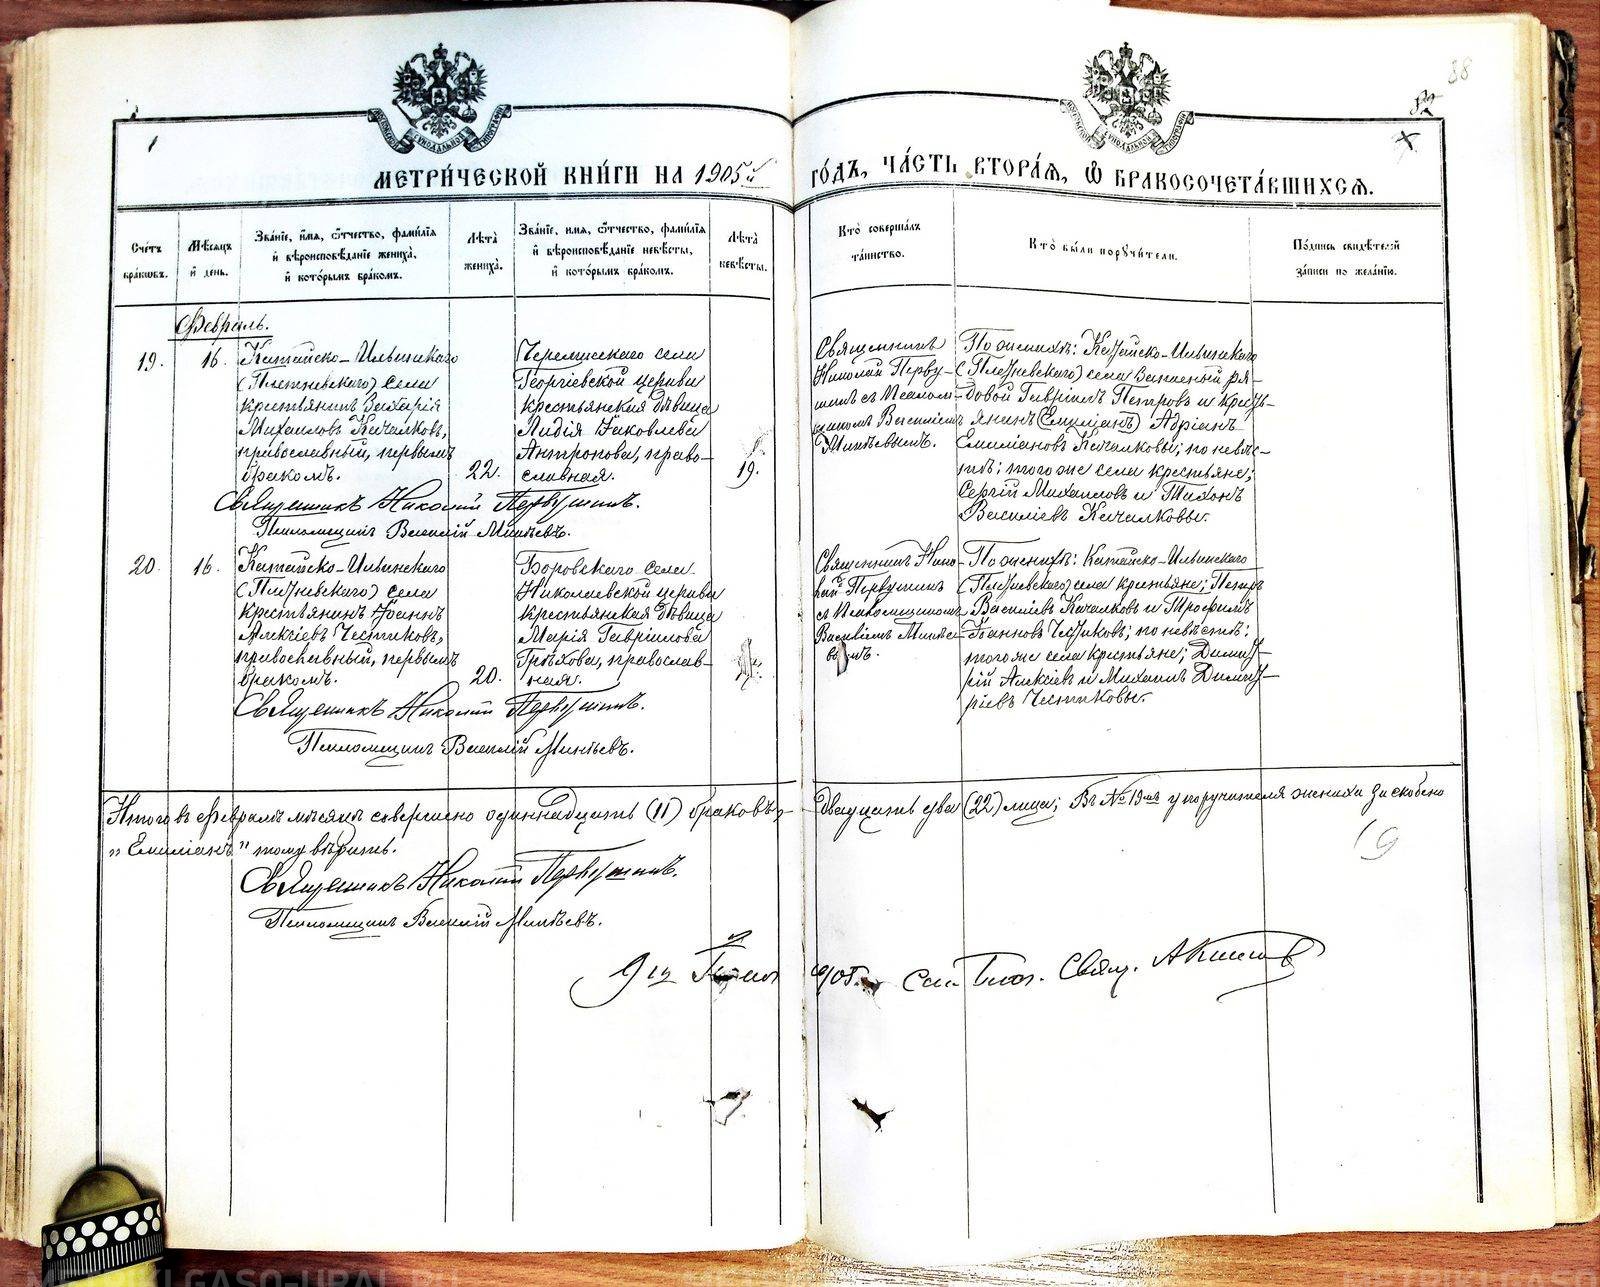 88
82
МОСКОВСКОЙ СѴНОДАЛЬНОЙ ТИПОГРАФІИ
МОСКОВСКОЙ СѴНОДАЛЬНОЙ ТИПОГРАФІИ
МЕТРИ́ЧЕСКОЙ КНИ́ГИ НА 1905й ГО́ДЪ, ЧА́СТЬ ВТОРА́Я, Ѽ БРАКОСОЧЕТА́ВШИХСЯ.
Сче́тъ
бра́ковъ.
Мѣ́сяцъ
и҆ день.
Зва́нїе, и҆́мя, ѻ҆́тчество, фами́лїя
и҆ вѣроисповѣ́данїе жениха̀,
и҆ кото́рымъ бра́комъ.
Лѣ́та
жениха̀.
Зва́нїе, и҆́мя, ѻ҆́тчество, фами́лїя
и҆ вѣроисповѣ́данїе невѣ́сты,
и҆ кото́рымъ бра́комъ.
Лѣ́та
невѣ́сты.
Кто̀ соверша́лъ
та́инство.
Кто̀ бы́ли порꙋчи́тели.
По́дпись свидѣ́телей
за́писи по жела́нїю.
Февраль.
19.
16.
Катайско-Ильинскаго
(Плетневскаго) села
крестьянинъ Захарія
Михаиловъ Качалковъ,
православный, первымъ
бракомъ.
22.
Черемисскаго села
Георгіевской церкви
крестьянская дѣвица
Лидія Іаковлева
Антропова, право-
славная.
19.
Священникъ
Николай Перву-
шинъ съ Псалом-
щикомъ Василіемъ
Минѣевымъ.
По женихѣ: Катайско-Ильинскаго
(Плетневскаго) села Запасный ря-
довой Гавріилъ Петровъ и кресть-
янинъ (Емиліанъ) Адріанъ
Емиліановъ Качалковы; по невѣс-
тѣ: того же села крестьяне;
Сергій Михаиловъ и Тихонъ
Василіевъ Качалковы.
Священникъ Николай Первушинъ.
Псаломщикъ Василій Минѣевъ.
20.
16.
Катайско-Ильинскаго
(Плетневскаго) села
крестьянинъ Іоаннъ
Алексіевъ Честиковъ,
православный, первымъ
бракомъ.
20.
Боровскаго села
Николаевской церкви
крестьянская дѣвица
Марія Гавріилова
Грѣхова, православ-
ная.
Священникъ Нико-
лай Первушинъ
съ Псаломщикомъ
Василіемъ Минѣе-
вымъ.
По женихѣ: Катайско-Ильинскаго
(Плетневскаго) села крестьяне; Петръ
Василіевъ Качалковъ и Трофимъ
Іоанновъ Честиковъ; по невѣстѣ:
того же села крестьяне; Димит-
рій Алексіевъ и Михаилъ Димит-
ріевъ Честиковы.
Священникъ Николай Первушинъ.
Псаломщикъ Василій Минѣевъ.
Итого въ Февралѣ мѣсяцѣ совершено одиннадцать (11) браковъ, двадцать два (22) лица; Въ № 19мъ у поручителя жениха заскоблено
„Емиліанъ" тому вѣрить.
19
Священникъ Николай Первушинъ.
Псаломщикъ Василій Минѣевъ.
1905. Благ. Свящ.
METRIKI.GASO-URAL.RU